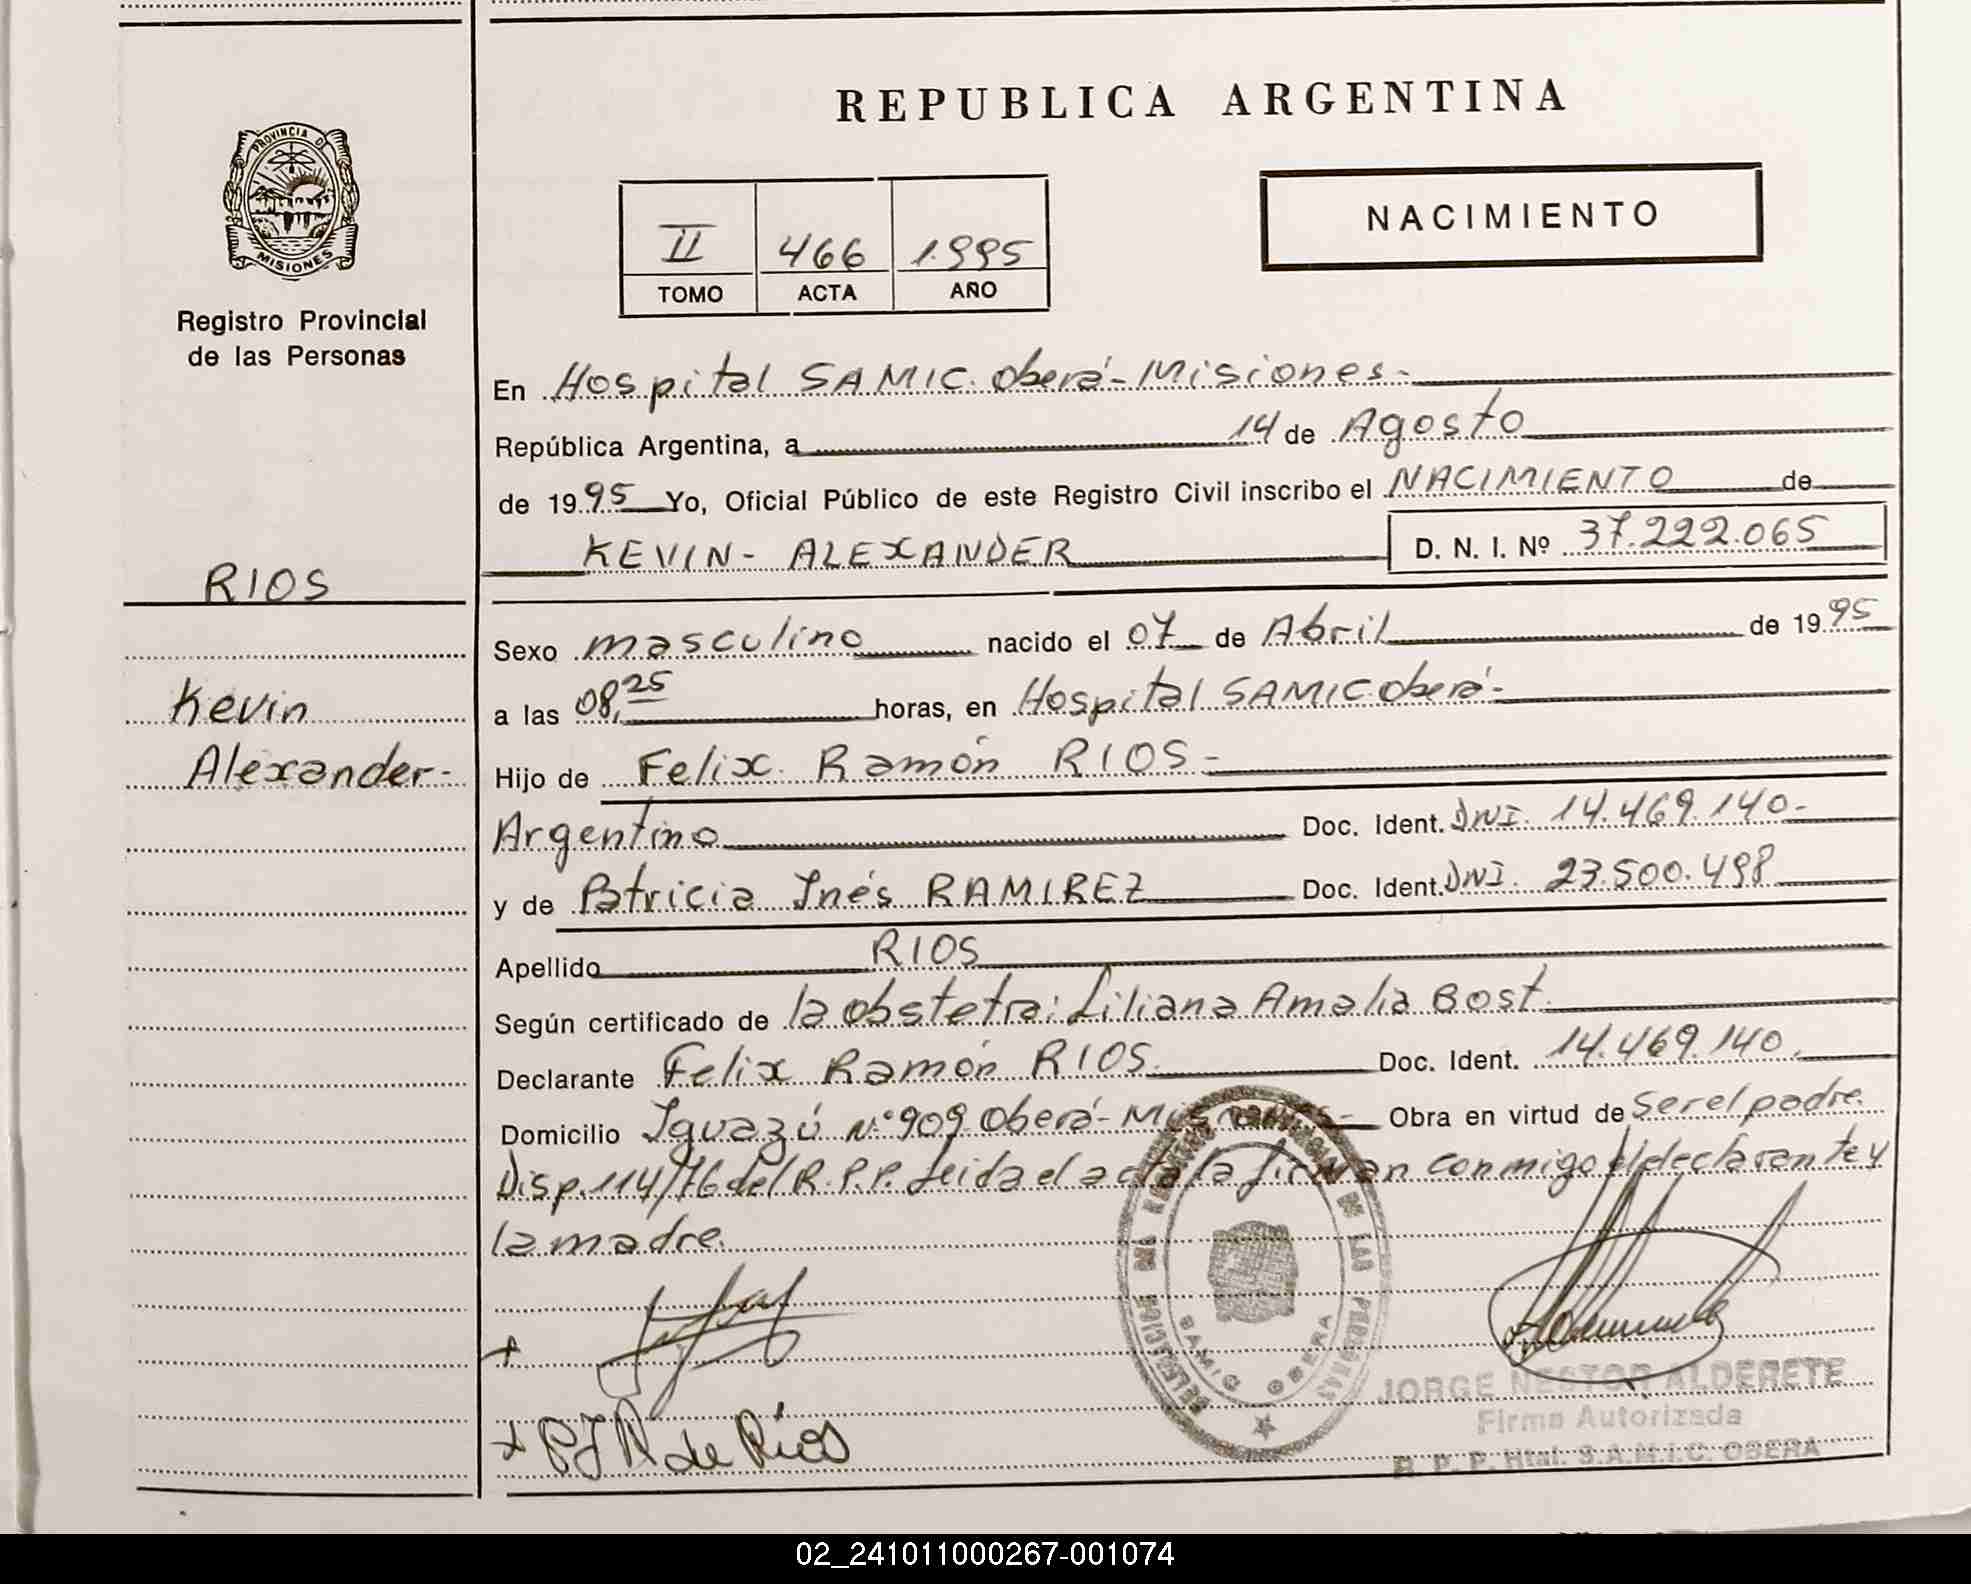 REPUBLICA ARGENTINA
PROVINCIA D
MISIONES
Registro Provincial
de las Personas
NACIMIENTO
II 466 1.995
TOMO ACTA AÑO
En Hospital SAMIC. Oberá - Misiones.-
República Argentina, a 14 de Agosto
de 1995 Yo, Oficial Público de este Registro Civil inscribo el NACIMIENTO de
KEVIN - ALEXANDER D. N. I. Nº 37.222.065
RIOS
Kevin
Alexander.-
Sexo masculino nacido el 07 de Abril de 1995
a las 08,25 horas, en Hospital SAMIC Oberá-
Hijo de Felix Ramón RIOS -
Argentino Doc. Ident. DNI. 14.469.140-
y de Patricia Inés RAMIREZ Doc. Ident. DNI. 23.500.498
Apellido RIOS
Según certificado de la obstetra: Liliana Amalia Bost.
Declarante Felix Ramón RIOS. Doc. Ident. 14.469.140.
Domicilio Iguazú Nº 909 Oberá - Misiones - Obra en virtud de Ser el padre.
Disp. 114/76 del R.P.P. Leida el acta la firman conmigo el declarante y
la madre.
DELEGACION DEL REGISTRO PROVINCIAL DE LAS PERSONAS
SAMIC OBERA
JORGE NESTOR ALDERETE
Firma Autorizada
R. P. P. Htal. S.A.M.I.C. OBERA
+ P I R de Rios
02_241011000267-001074